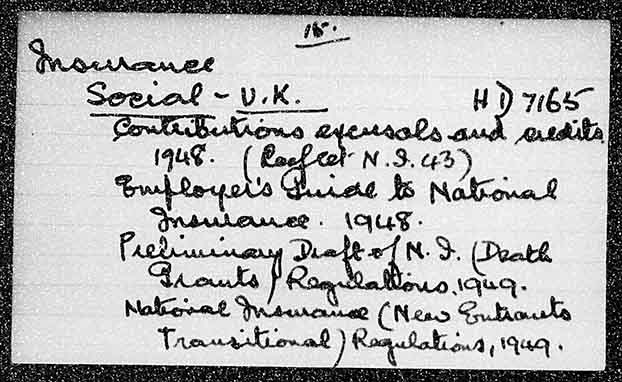 15.
Insurance
Social - U.K. HD 7165
Contributions excusals and credits
1948. (Leaflet N.I. 43)
Employer's Guide to National
Insurance. 1948.
Preliminary Draft of N.I. (Death
Grants) Regulations, 1949.
National Insurance (New Entrants
Transitional) Regulations, 1949.